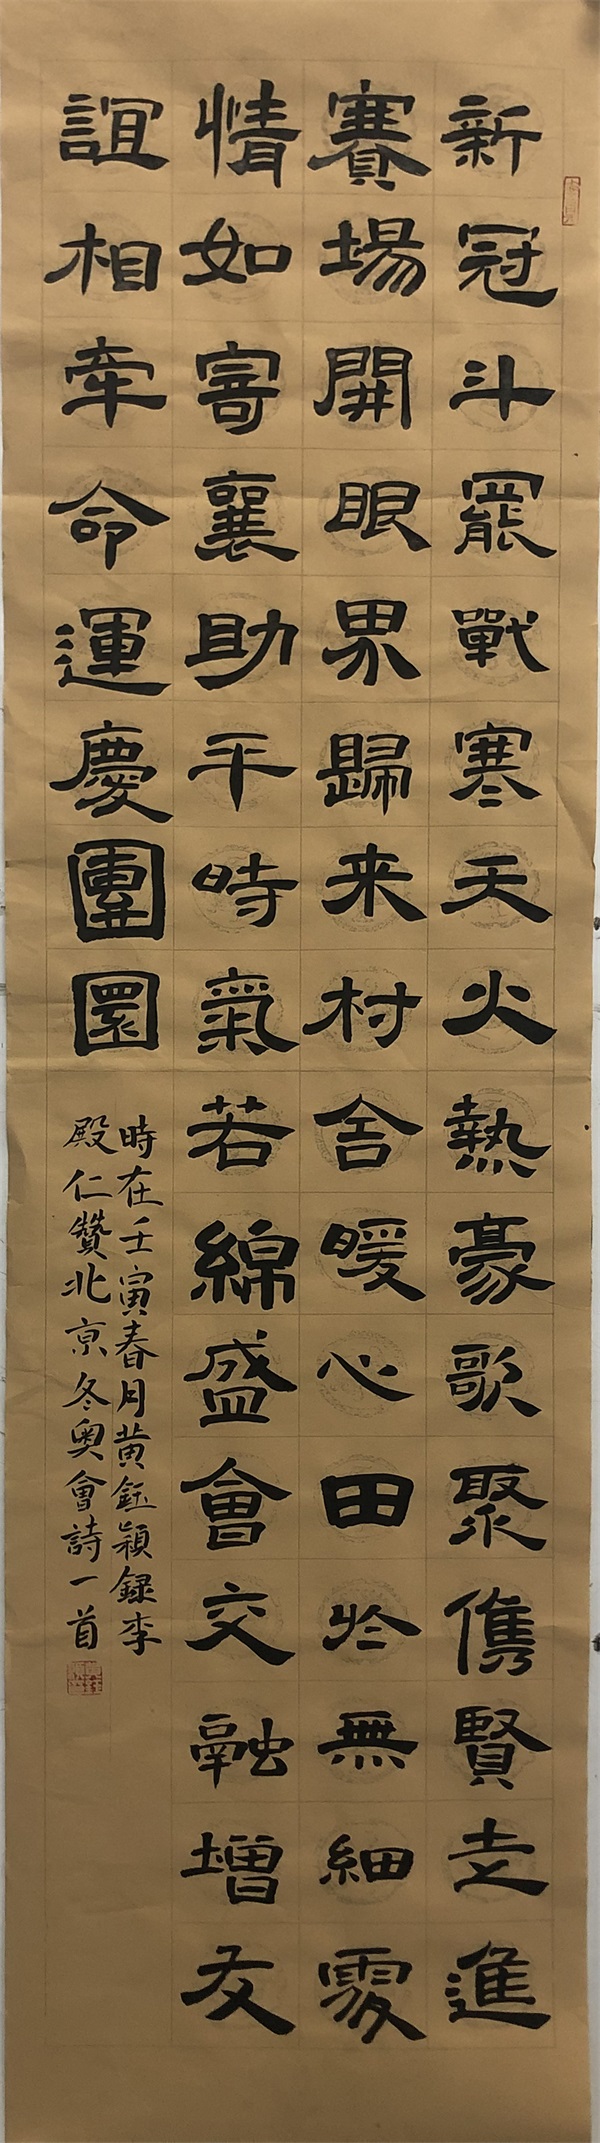 新冠斗罷戰寒天火熱豪歌聚儁賢走進
賽場開眼界歸来村舍暖心田於無細處
情如寄襄助平時氣若綿盛會交融增友
誼相牽命運慶團圓
時在壬寅春月黄鈺穎録李
殿仁贊北京冬奥會詩一首